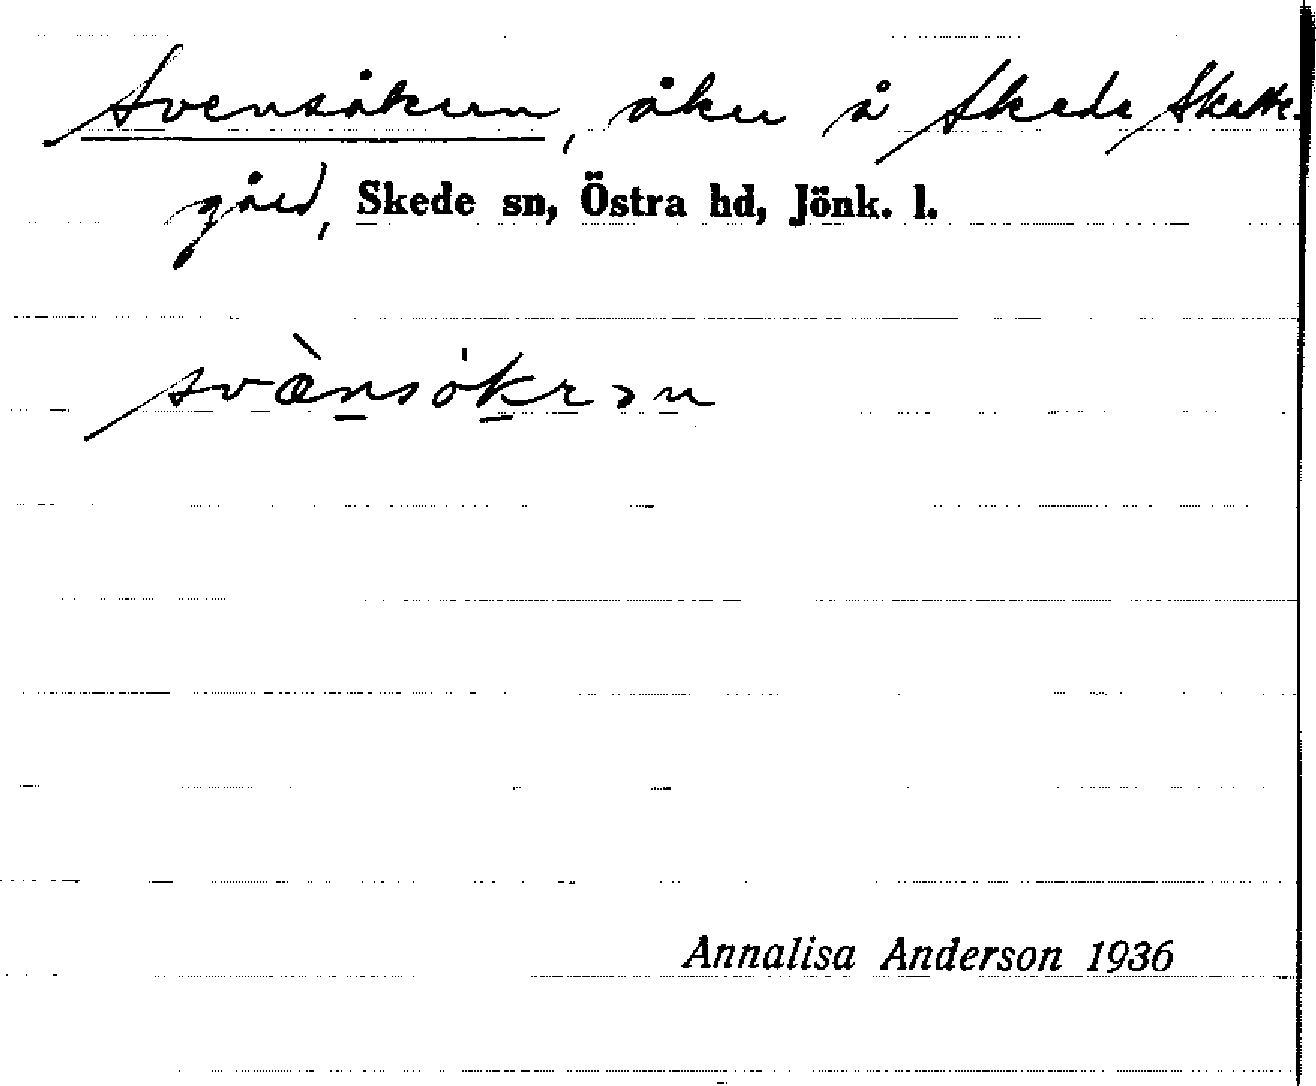 Svensåkern, åker å Skede Skatte-
gård, Skede sn, Östra hd, Jönk. l.
svæ̀nsókrən
Annalisa Anderson 1936